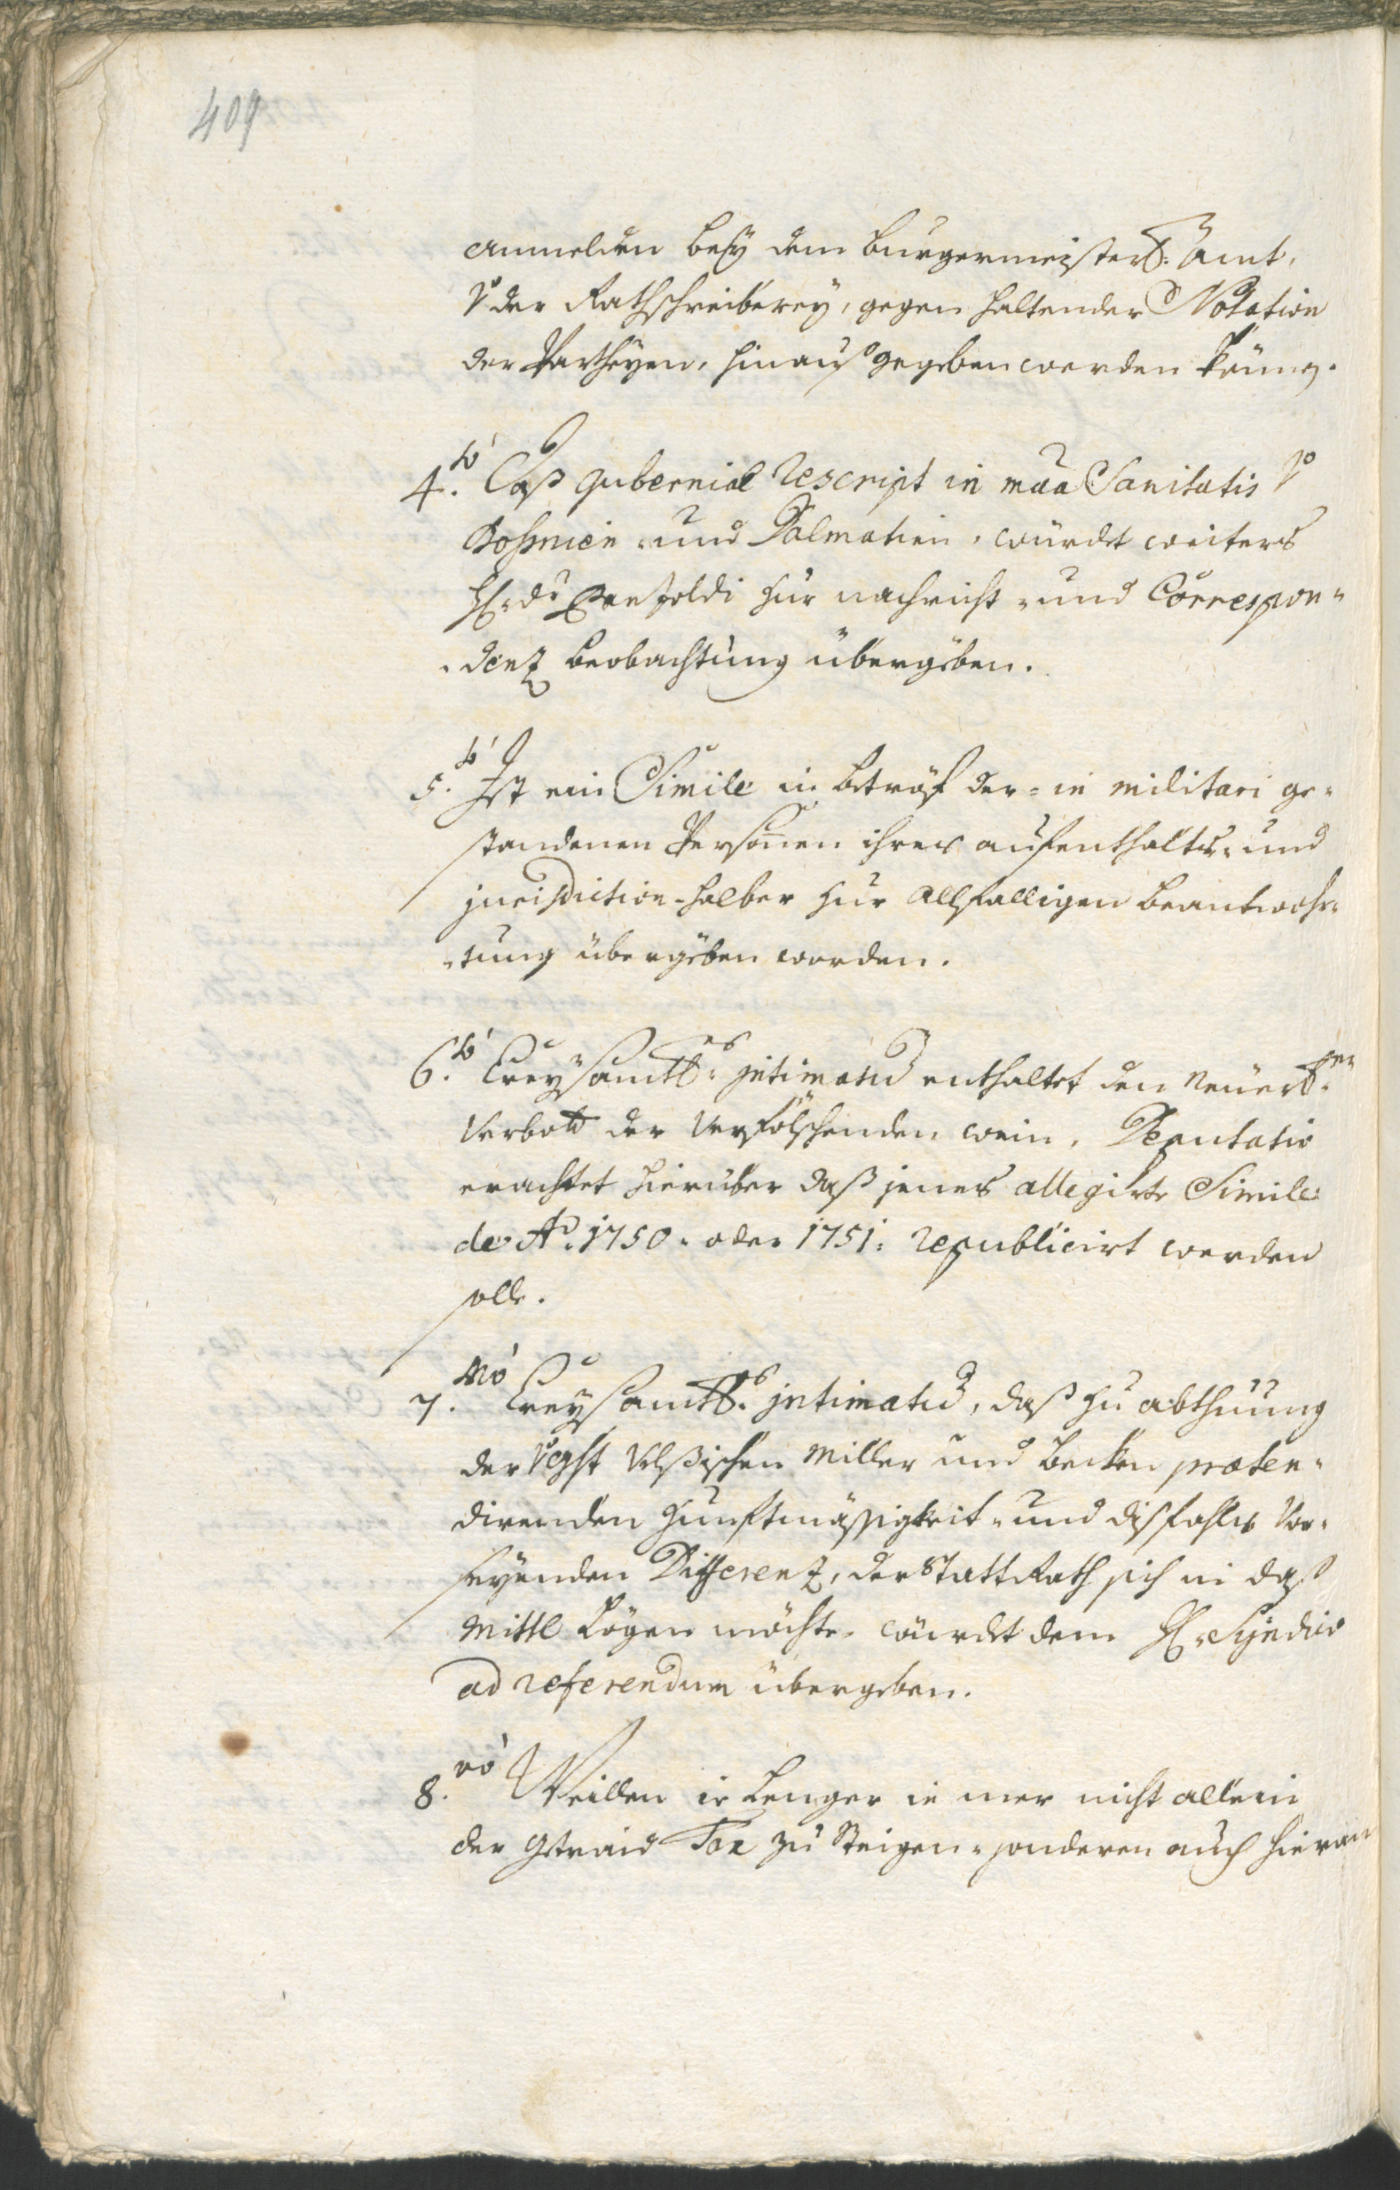 409
anmelden beÿ dem burgermeister: Amt,
der Rathschreiberey, gegen haltender Notation
der Partheyen, hinauß gegeben werden könne.
4.to Das gubernial Rescript in maa Sanitatis
Boßnien und Dalmatien, würdet weiters
H: dr zur nachricht- und Correspon-
denz beobachtung übergeben.
5.to Ist ein Simile in betröf der in militari ge-
standenen Persohnen ihres aufenthalts- und
jurisdiction-halber zur allfalligen beantwohr-
tung übergeben worden.
6.to Creysamtl: jntimatum enthaltet den neuerl:en
Verbott der Verfölschenden wein, Deputatio
erachtet hierüber daß jenes allegirte Simile
de Ao: 1750. oder 1751: republicirt werden
solle.
7.mo Creysamtl: jntimatum, daß zu abthuung
der Miller und Becken præten-
direnden Zunftmässigkeit- und disfahls vor-
seyenden Differenz, der Statt Rath sich in daß
Mittl Lögen möchte, würdet dem H: Syndico
ad referendum übergeben.
8.vo Weillen ie Lenger ie mer nicht allein
der getraid Tax zu Steigen, sonderen auch hieran